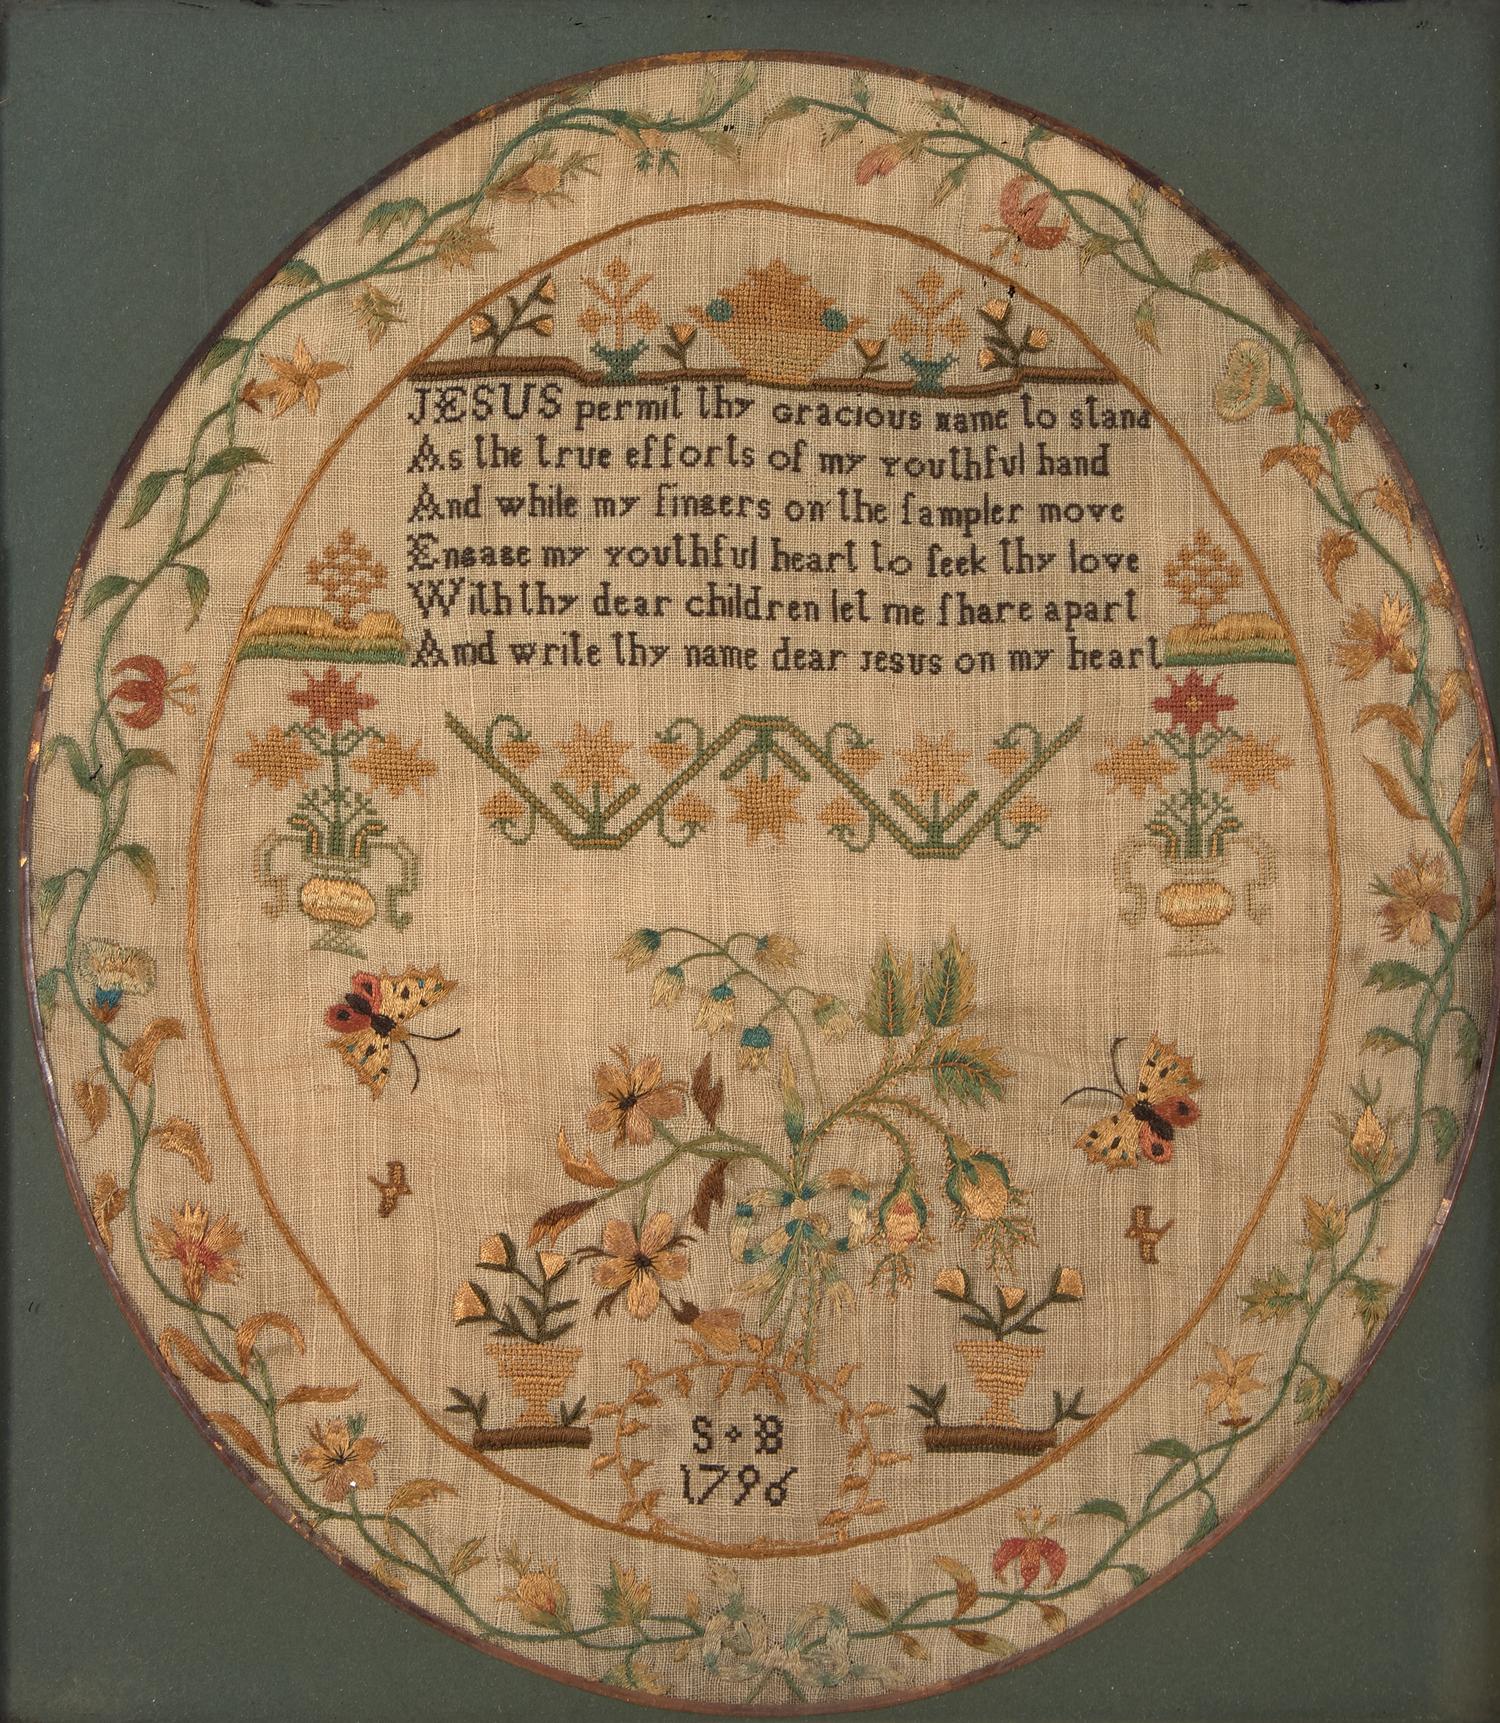 JESUS permit thy Gracious name to stand
As the true efforts of my youthful hand
And while my fingers on the ſampler move
Engage my youthful heart to ſeek thy love
With thy dear children let me ſhare apart
And write thy name dear Jesus on my heart
S + B
1796